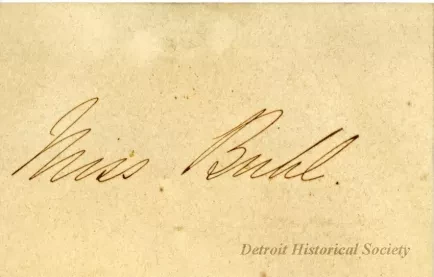 Miss Buhl.
Detroit Historical Society